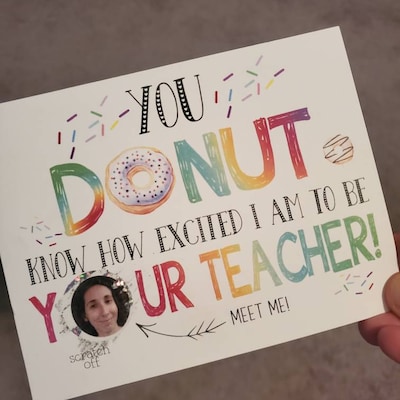 YOU
DONUT
KNOW HOW EXCITED I AM TO BE
YOUR TEACHER!
MEET ME!
scratch
off